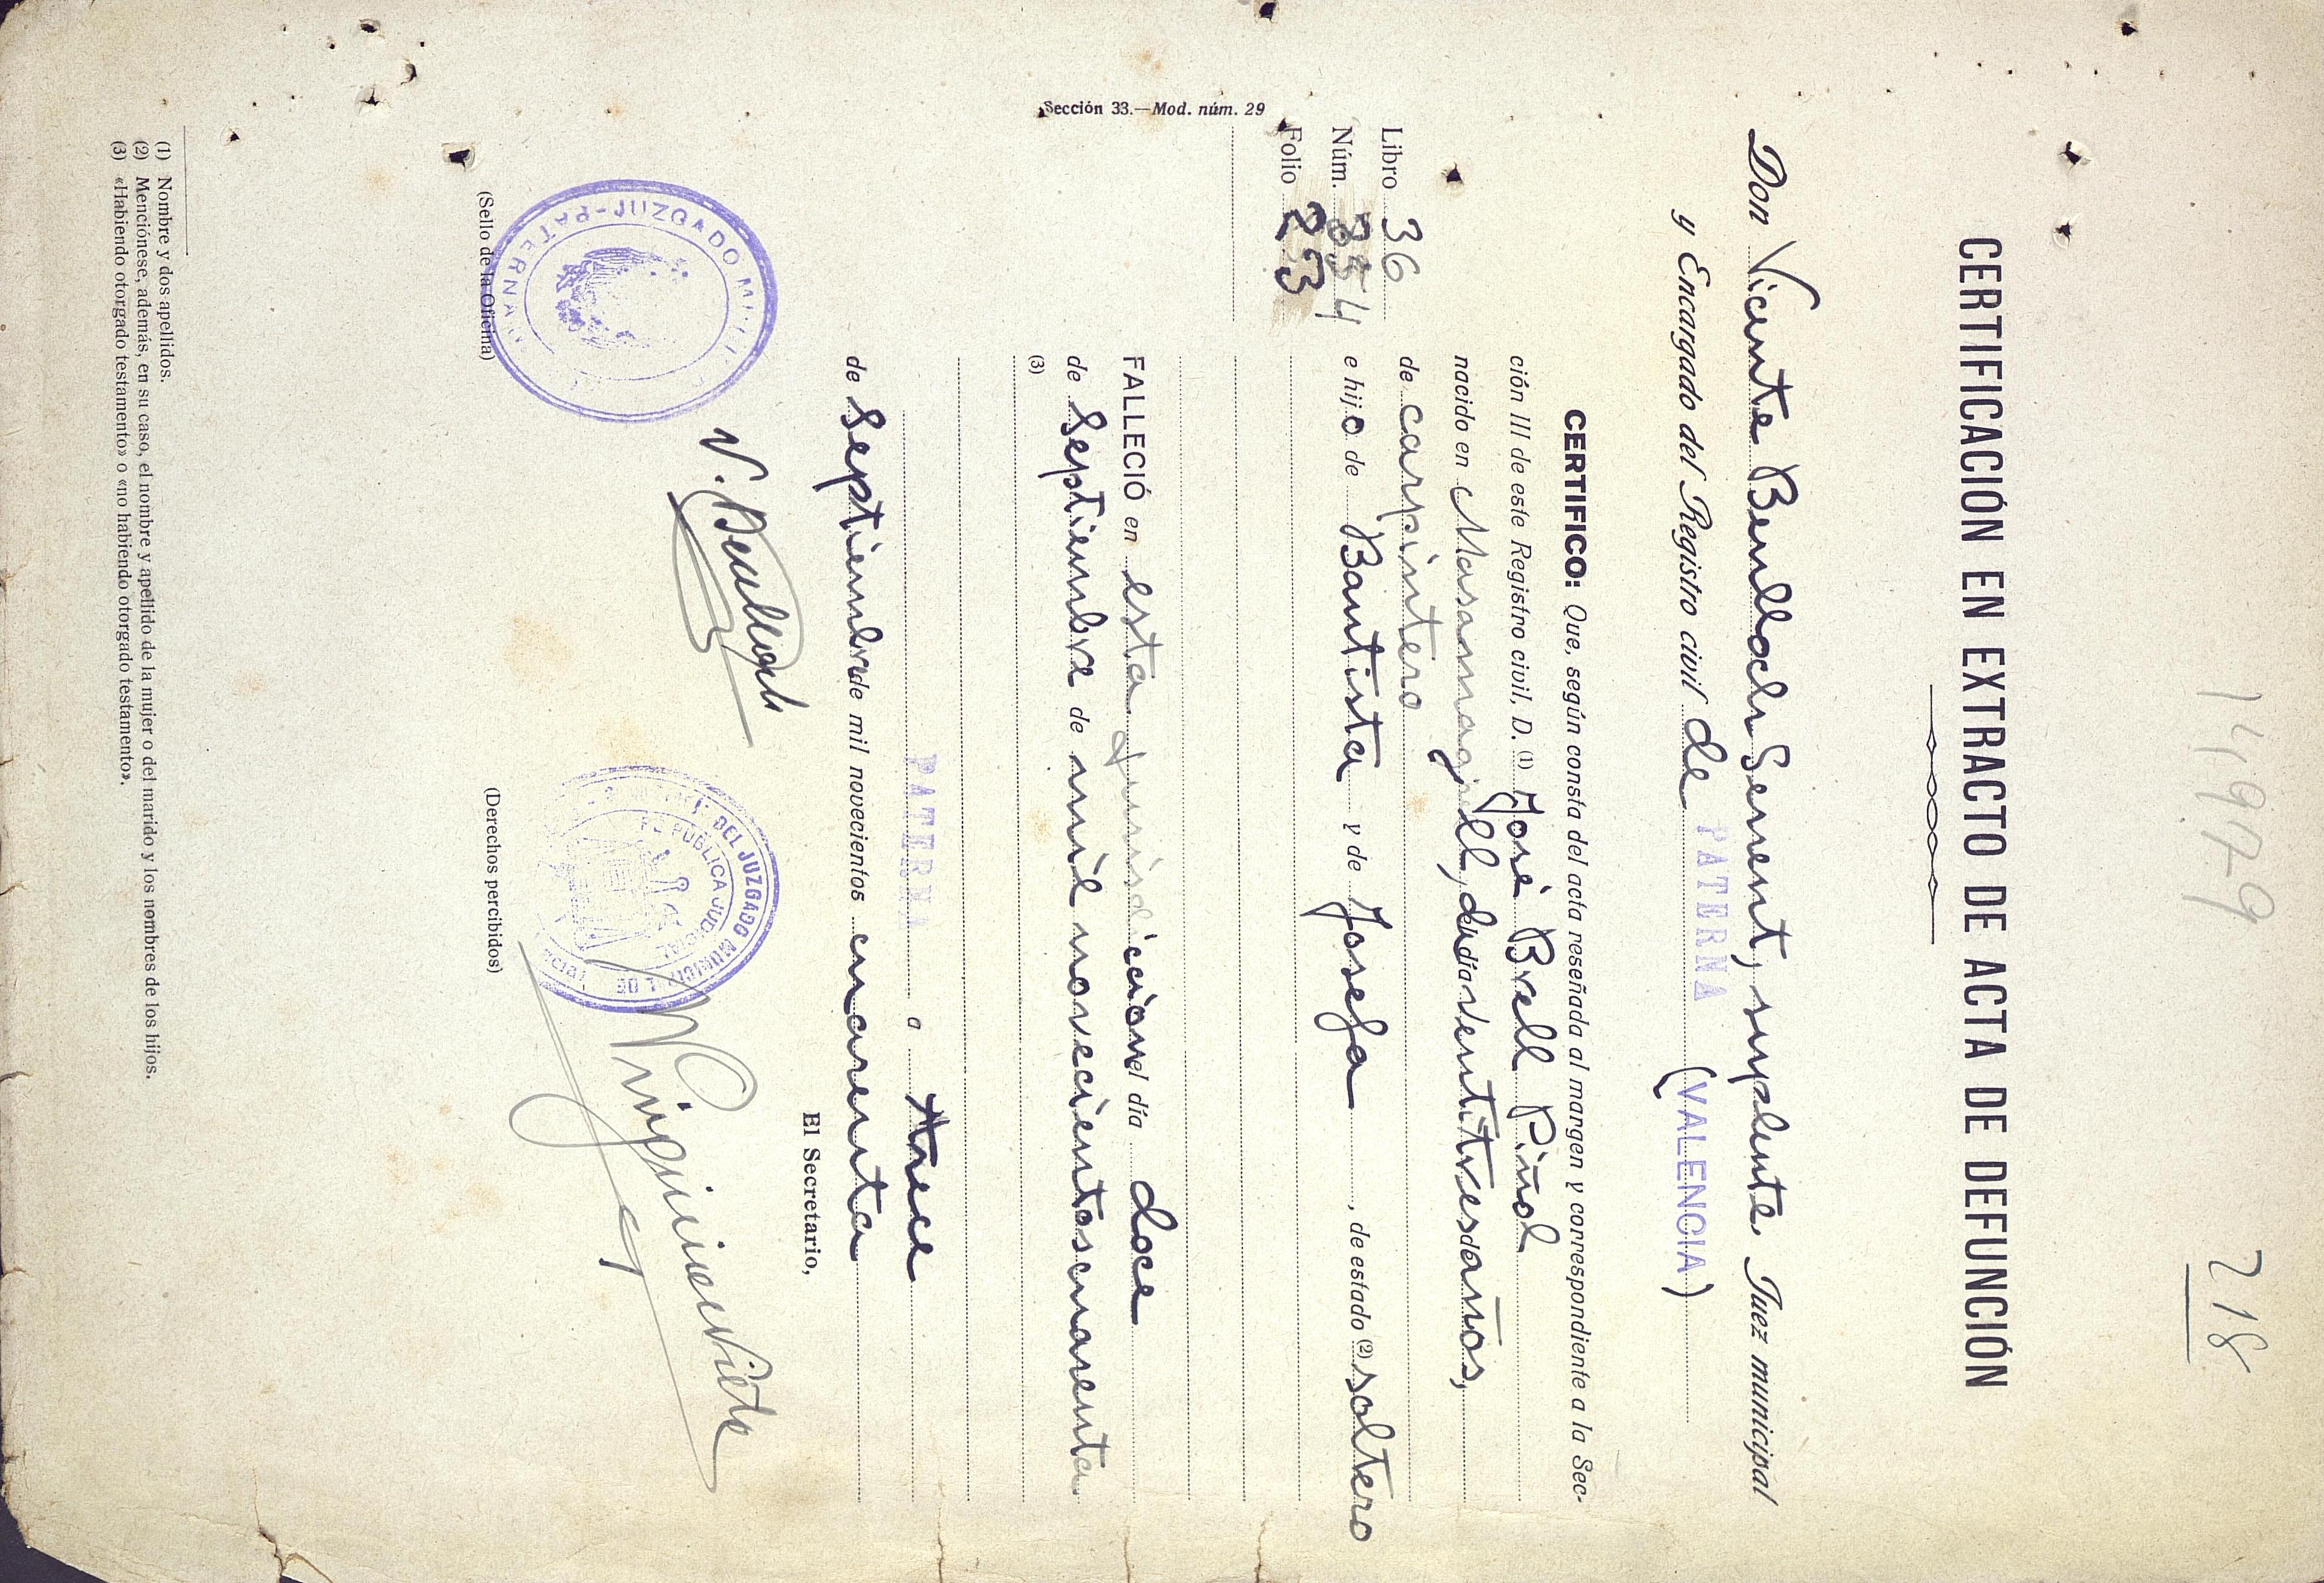 14979
218
CERTIFICACIÓN EN EXTRACTO DE ACTA DE DEFUNCIÓN
Don Vicente Benlloch Senent, suplente Juez municipal
y Encargado del Registro civil de PATERNA (VALENCIA)
CERTIFICO: Que, según consta del acta reseñada al margen y correspondiente a la Sec-
ción III de este Registro civil, D. (1) José Brell Piñol
nacido en Masamagrell, de día veintitres de años,
de carpintero
e hijo de Bautista y de Josefa, de estado (2) soltero
Libro 36
Núm. 354
Folio 23
Sección 33.—Mod. núm. 29
FALLECIÓ en esta jurisdiccion el día doce
de Septiembre de mil novecientos cuarenta
(3)
PATERNA a trece
de Septiembre de mil novecientos cuarenta
El Secretario,
V. Benlloch
JUZGADO MUNICIPAL
PATERNA
DEL JUZGADO MUNICIPAL DE
(Sello de la Oficina)
(Derechos percibidos)
(1) Nombre y dos apellidos.
(2) Menciónese, además, en su caso, el nombre y apellido de la mujer o del marido y los nombres de los hijos.
(3) «Habiendo otorgado testamento» o «no habiendo otorgado testamento».